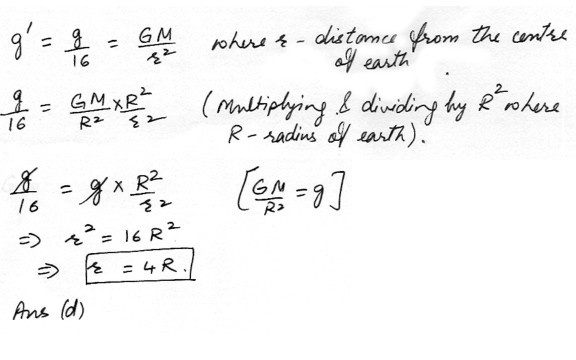 g' = g/16 = GM/r² where r - distance from the centre
of earth.
g/16 = GM/R² × R²/r² (Multiplying & dividing by R² where
R - radius of earth).
g/16 = g × R²/r² [GM/R² = g]
⇒ r² = 16 R²
⇒ r = 4R.
Ans (d)